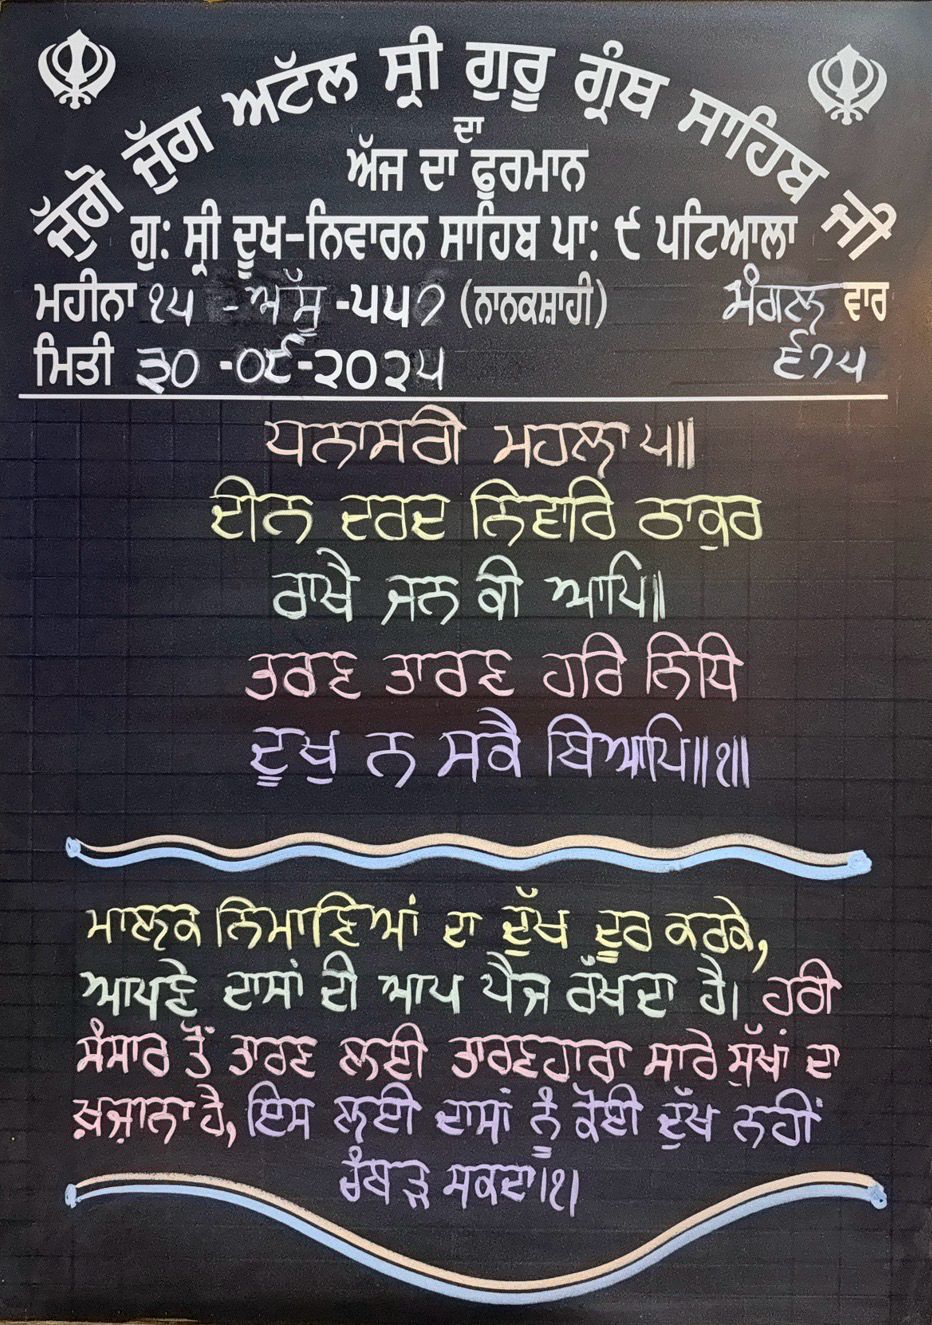 ਜੁੱਗੋ ਜੁੱਗ ਅਟੱਲ ਸ੍ਰੀ ਗੁਰੂ ਗ੍ਰੰਥ ਸਾਹਿਬ ਜੀ
ਦਾ
ਅੱਜ ਦਾ ਫੂਰਮਾਨ
ਗੁ: ਸ੍ਰੀ ਦੂਖ-ਨਿਵਾਰਨ ਸਾਹਿਬ ਪਾ: ੯ ਪਟਿਆਲਾ
ਮਹੀਨਾ ੧੫ -ਅੱਸੂ -੫੫੭ (ਨਾਨਕਸ਼ਾਹੀ) ਮੰਗਲ ਵਾਰ
ਮਿਤੀ ੩੦ -੦੯-੨੦੨੫ ੬੭੫
ਧਨਾਸਰੀ ਮਹਲਾ ੫॥
ਦੀਨ ਦਰਦ ਨਿਵਾਰਿ ਠਾਕੁਰ
ਰਾਖੈ ਜਨ ਕੀ ਆਪਿ॥
ਤਰਣ ਤਾਰਣ ਹਰਿ ਨਿਧਿ
ਦੂਖੁ ਨ ਸਕੈ ਬਿਆਪਿ॥੧॥
ਮਾਲਕ ਨਿਮਾਣਿਆਂ ਦਾ ਦੁੱਖ ਦੂਰ ਕਰਕੇ,
ਆਪਣੇ ਦਾਸਾਂ ਦੀ ਆਪ ਪੈਜ ਰੱਖਦਾ ਹੈ। ਹਰੀ
ਸੰਸਾਰ ਤੋਂ ਤਾਰਣ ਲਈ ਤਾਰਣਹਾਰਾ ਸਾਰੇ ਸੁੱਖਾਂ ਦਾ
ਖ਼ਜ਼ਾਨਾ ਹੈ, ਇਸ ਲਈ ਦਾਸਾਂ ਨੂੰ ਕੋਈ ਦੁੱਖ ਨਹੀਂ
ਚੰਬੜ ਸਕਦਾ।੧।